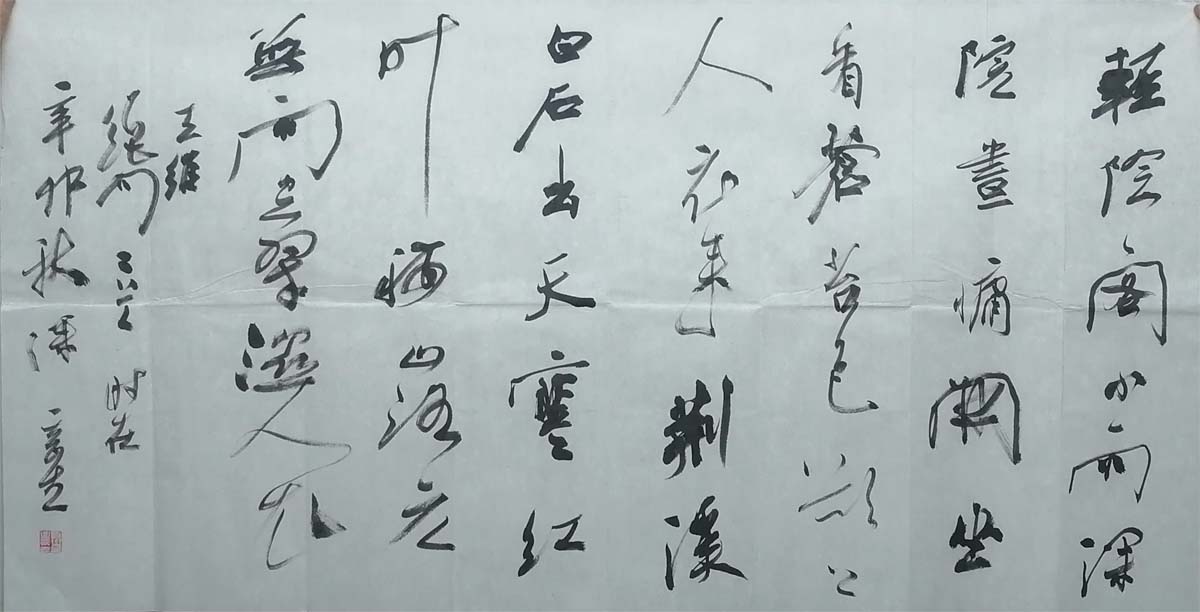 輕陰閣小雨深
院晝慵開坐
看蒼苔色欲上
人衣来荆溪
白石出天寒红
叶稀山路元
無雨空翠濕人衣
王維
绝句二首 时在
辛卯秋深